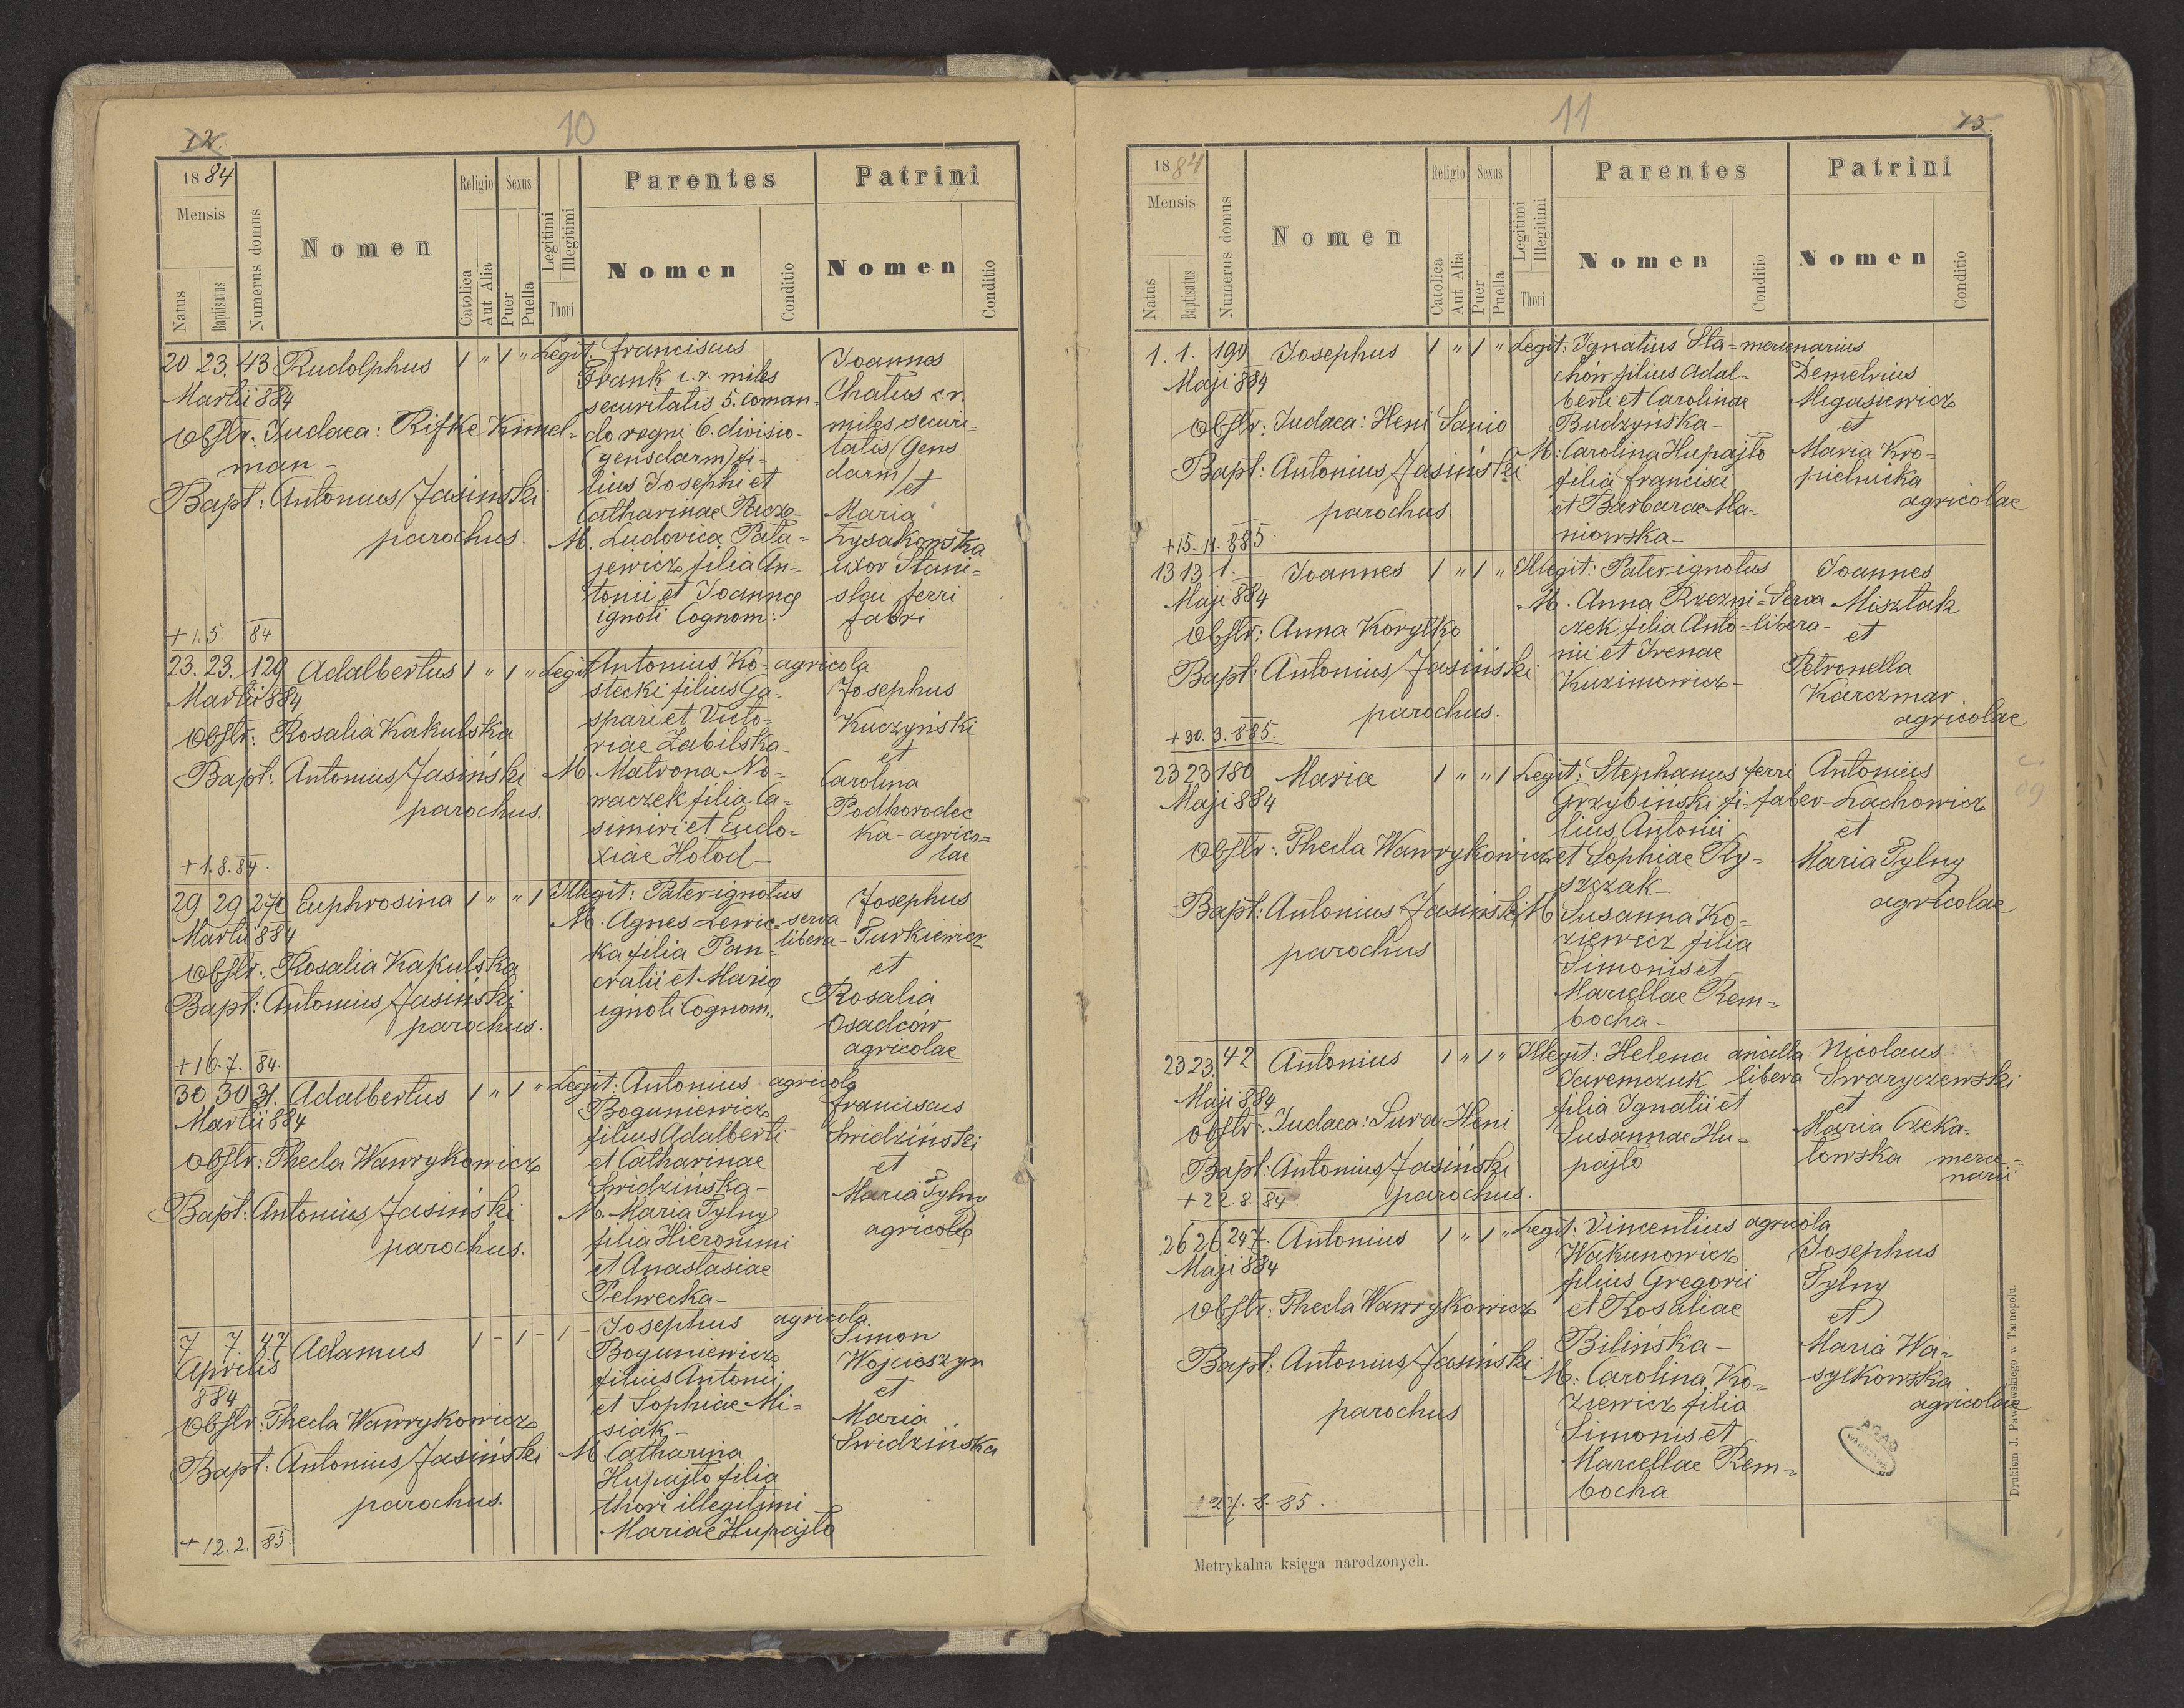 12.
10
1884
Mensis
Natus
Baptisatus
Numerus domus
Nomen
Religio
Catolica
Aut Alia
Sexus
Puer
Puella
Legitimi
Illegitimi
Thori
Parentes
Nomen
Conditio
Patrini
Nomen
Conditio
20 23. 43 Rudolphus 1 " 1 " Legit: Franciscus
Martii 884
Frank c.r. miles
securitatis 5. coman-
do regni 6. divisio-
(gensdarm) fi-
lius Josephi et
Catharinae
M. Ludovica Pata-
jewicz filia An-
tonii et Joannae
ignoti Cognom:
Joannes
Chatus c.r.
miles securi-
tatis (Gens
darm)
et
Maria
Łysakowska
uxor Stani-
slai ferri
fabri
Obstr: Judaea: Rifke Kimel-
man-
Bapt: Antonius Jasiński
parochus.
+ 1.5. 84
23. 23. 129 Adalbertus 1 " 1 " Legit Antonius Ko- agricola
Martii 884
stecki filius Ga-
spari et Victo-
riae Zabilska-
M. Matrona No-
waczek filia Ca-
simiri et Eudo-
xiae Hołod-
Josephus
Kuczyński
et
Carolina
Podhorodec
ka- agrico=
lae
Obstr: Rosalia Kakulska
Bapt: Antonius Jasiński
parochus.
+ 1.8.84.
29 29 270 Euphrosina 1 " " 1 Illegit: Pater ignotus
Martii 884
M. Agnes Lewic- serva
ka filia Pan- libera-
cratii et Mariae
ignoti Cognom.
Josephus
Turkiewicz
et
Rosalia
Osadców
agricolae
Obstr: Rosalia Kakulska
Bapt: Antonius Jasiński
parochus.
+ 16.7. 84.
30 30 31. Adalbertus 1 " 1 " Legit: Antonius agricola
Martii 884
Boguniewicz
filius Adalberti
et Catharinae
Swidzińska-
M. Maria Tylny
filia Hieronimi
et Anastasiae
Pelwecka-
Franciscus
Swidziński
et
Maria Tylny
agricolae
Obstr: Thecla Wawrykowicz
Bapt: Antonius Jasiński
parochus.
7 7. 47 Adamus 1 - 1 - 1 - Josephus agricola
Aprilis
884
Boguniewicz
filius Antonii
et Sophiae Mi-
siak-
M Catharina
Hupajło filia
thori illegitimi
Mariae Hupajło
Simon
Wojcieszyn
et
Maria
Swidzińska
Obstr: Thecla Wawrykowicz
Bapt: Antonius Jasiński
parochus.
+ 12.2. 85.
11
13.
1884
Mensis
Natus
Baptisatus
Numerus domus
Nomen
Religio
Catolica
Aut Alia
Sexus
Puer
Puella
Legitimi
Illegitimi
Thori
Parentes
Nomen
Conditio
Patrini
Nomen
Conditio
1. 1. 190 Josephus 1 " 1 " Legit: Ignatius Sta- mercenarius
Maji 884
chów filius Adal-
berti et Carolinae
Budzyńska-
M: Carolina Hupajło
filia Francisci
et Barbarae Ma-
niowska-
Demetrius
Megasiewicz
et
Maria Kro-
pielnicka
agricolae
Obstr: Judaea: Heni Sanio
Bapt: Antonius Jasiński
parochus.
+ 15. 11. 885.
13 13 1. Joannes 1 " 1 " Illegit: Pater ignotus
Maji 884
M. Anna Rzezni- Serva
czek filia Anto- libera-
nii et Irenae
Kuzimowicz-
Joannes
Misztak
et
Petronella
Karczmar
agricolae
Obstr: Anna Korytko
Bapt: Antonius Jasiński
parochus.
+ 30. 3. 885.
23 23 180 Maria 1 " " 1 Legit: Stephanus ferri
Maji 884
Grzybiński fi- faber-
lius Antonii
et Sophiae Ry-
szczak-
M Susanna Ko-
ziewicz filia
Simonis et
Marcellae Rem-
bocha-
Antonius
Lachowicz
et
Maria Tylny
agricolae
Obstr: Thecla Wawrykowicz
Bapt: Antonius Jasiński
parochus
23 23. 42 Antonius 1 " 1 " Illegit: Helena ancilla
Maji 884
Jaremczuk libera
filia Ignatii et
Susannae Hu-
pajło
Nicolaus
Swaryczewski
et
Maria Czeka-
łowska merce-
narii
Obstr: Judaea: Sura Heni
Bapt: Antonius Jasiński
parochus.
+ 22. 8. 84
26 26 247. Antonius 1 " 1 " Legit: Vincentius agricola
Maji 884
Wakunowicz
filius Gregorii
et Rosaliae
Bilińska-
M: Carolina Ko-
ziewicz filia
Simonis et
Marcellae Rem-
bocha
Josephus
Tylny
et
Maria Wa-
sylkowska
agricolae
Obstr: Thecla Wawrykowicz
Bapt: Antonius Jasiński
parochus
27. 8. 85.
AGAD
WARSZAWA
Metrykalna księga narodzonych.
Drukiem J. Pawłowskiego w Tarnopolu.